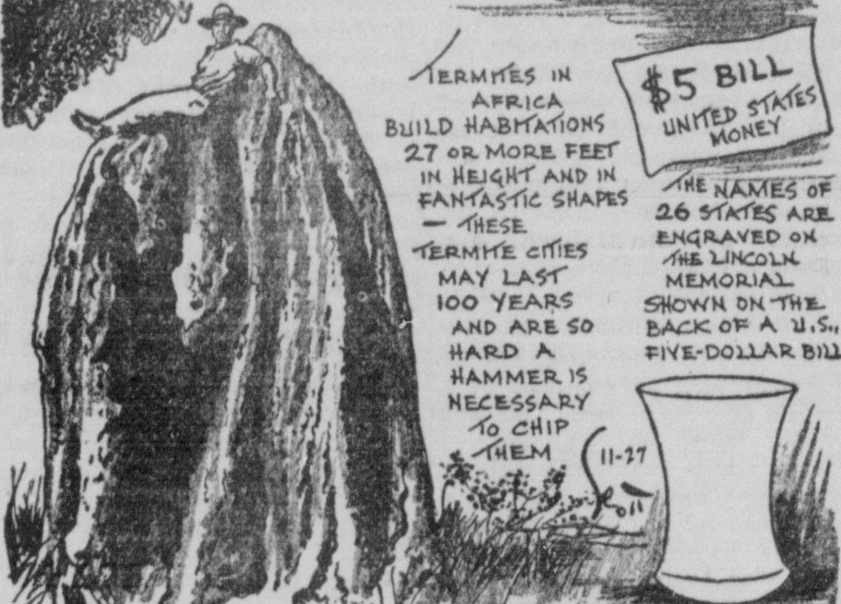 TERMITES IN
AFRICA
BUILD HABITATIONS
27 OR MORE FEET
IN HEIGHT AND IN
FANTASTIC SHAPES
— THESE
TERMITE CITIES
MAY LAST
100 YEARS
AND ARE SO
HARD A
HAMMER IS
NECESSARY
TO CHIP
THEM
$5 BILL
UNITED STATES
MONEY
THE NAMES OF
26 STATES ARE
ENGRAVED ON
THE LINCOLN
MEMORIAL
SHOWN ON THE
BACK OF A U.S.,
FIVE-DOLLAR BILL
11-27